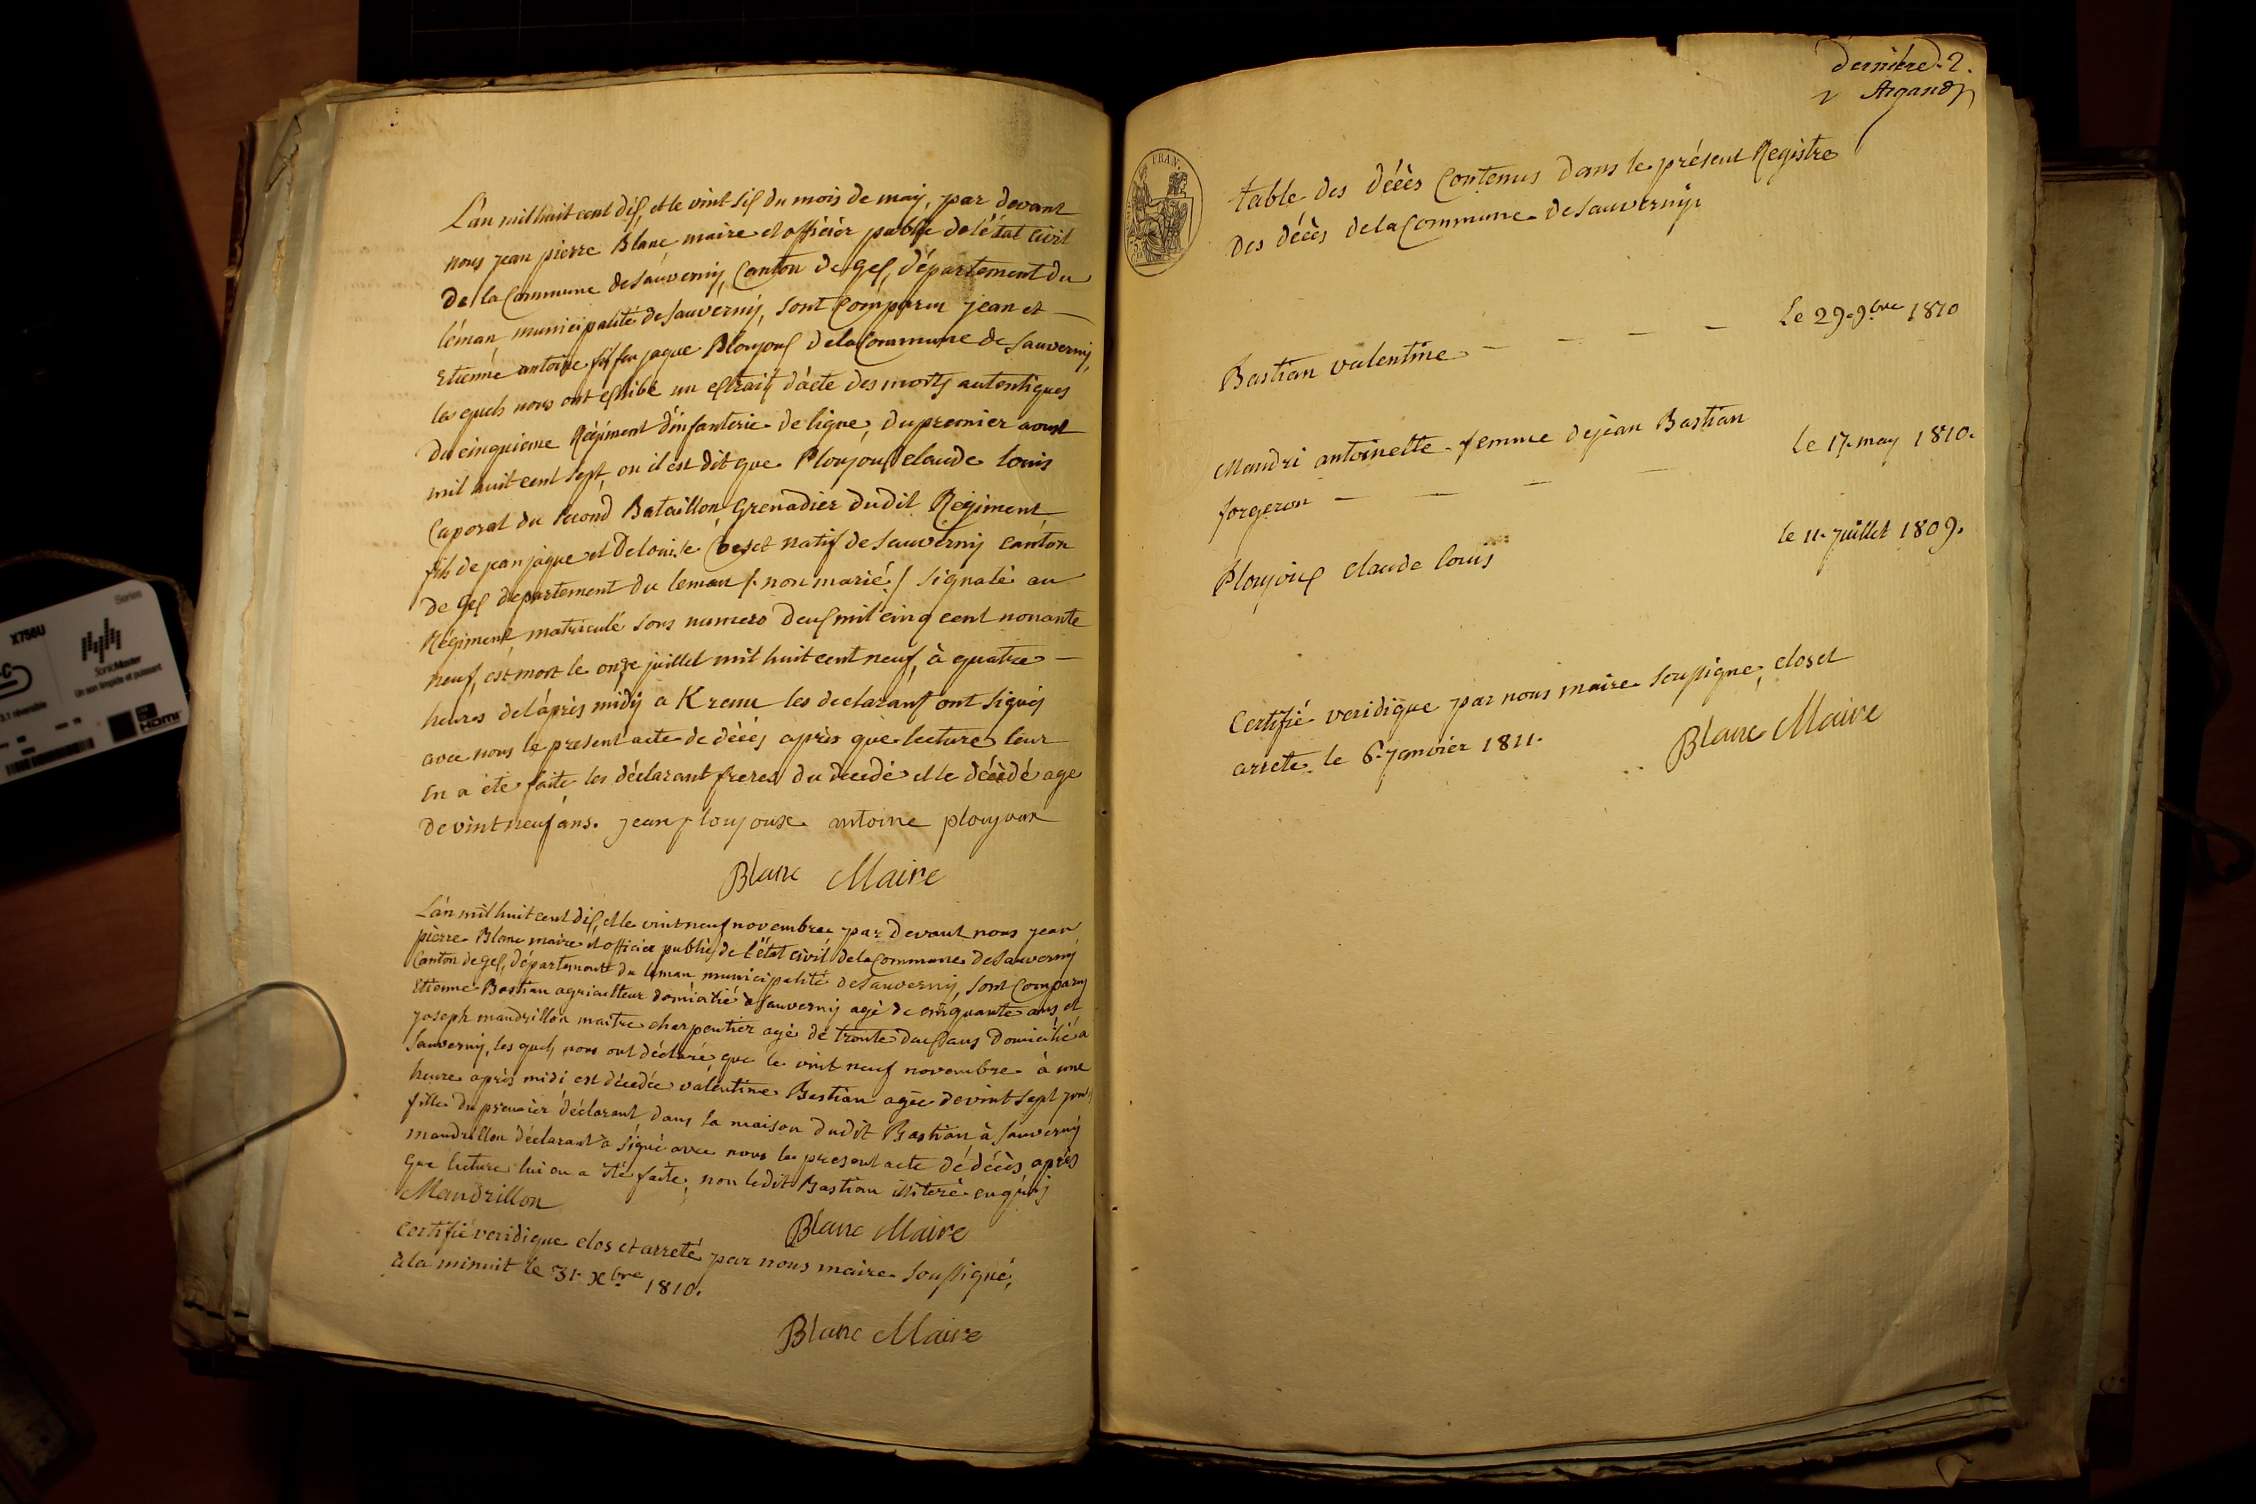 L'an mil huit cent dix, et le vint six du mois de may, par devant
nous jean pierre Blanc maire et officier public de l'état civil
De la Commune de Sauverny, Canton de Gex, département du
léman, municipalité de Sauverny, sont Comparu jean et —
Etienne antoine fils feu jaque Ploujoux de la Commune de Sauverny,
lesquels nous ont exhibé un extrait d'acte des morts autentiques
du cinquieme Régiment d'infanterie de ligne, du premier aoust
mil huit cent sept, ou il est dit que Ploujoux claude louis
Caporal du second Bataillon Grenadier dudit Régiment
fils de jean jaque et De louise natif de Sauverny canton
de Gex departement du leman /. non marié / signalé au
Régiment, matriculé sous numero deux mil cinq cent nonante
neuf, est mort le onze juillet mil huit cent neuf, à quatre —
heures de l'après midy a Krems les declarant ont signés
avec nous le present acte de décés après que lecture leur
en a été faite, les déclarant freres du decedé et le décédé age
de vint neuf ans. jean ploujoux antoine ploujoux
Blanc Maire
L'an mil huit cent dix, et le vint neuf novembre par devant nous jean
pierre Blanc maire et officier public de l'état civil de la Commune de Sauverny
Canton de Gex, département du leman municipalité de Sauverny, sont Comparu
Etienne Bastian agriculteur domicilié à Sauverny agé de cinquante ans et
joseph mandrillon maitre charpentier agé de trente deux ans Domicilié a
Sauverny, lesquels nous ont déclaré que le vint neuf novembre à une
heure après midi est décedée valentine Bastian agée de vint sept jour
fille du premier déclarant dans la maison dudit Bastian à Sauverny
mandrillon déclarant a signé avec nous le present acte de décès après
que lecture lui en a été faite, non ledit Bastian illiteré enquis
Mandrillon
Blanc Maire
Certifié veridique clos et arreté par nous maire soussigné,
à la minuit le 31 Xbre 1810.
Blanc Maire
dernière. 2.
Argand
FRAN.
table des décès Contenus dans le présent Registre
Des décès de la Commune de Sauverny
Bastian valentine — — — — Le 29. 9bre 1810
Mandri antoinette femme de jean Bastian
forgeron — — — — le 17. may 1810.
Ploujoux claude louis le 11. juillet 1809.
Certifié veridique par nous maire soussigné, clos et
arreté le 6. janvier 1811.
Blanc Maire
Series
X756U
SonicMaster
Un son limpide et puissant
HDMI